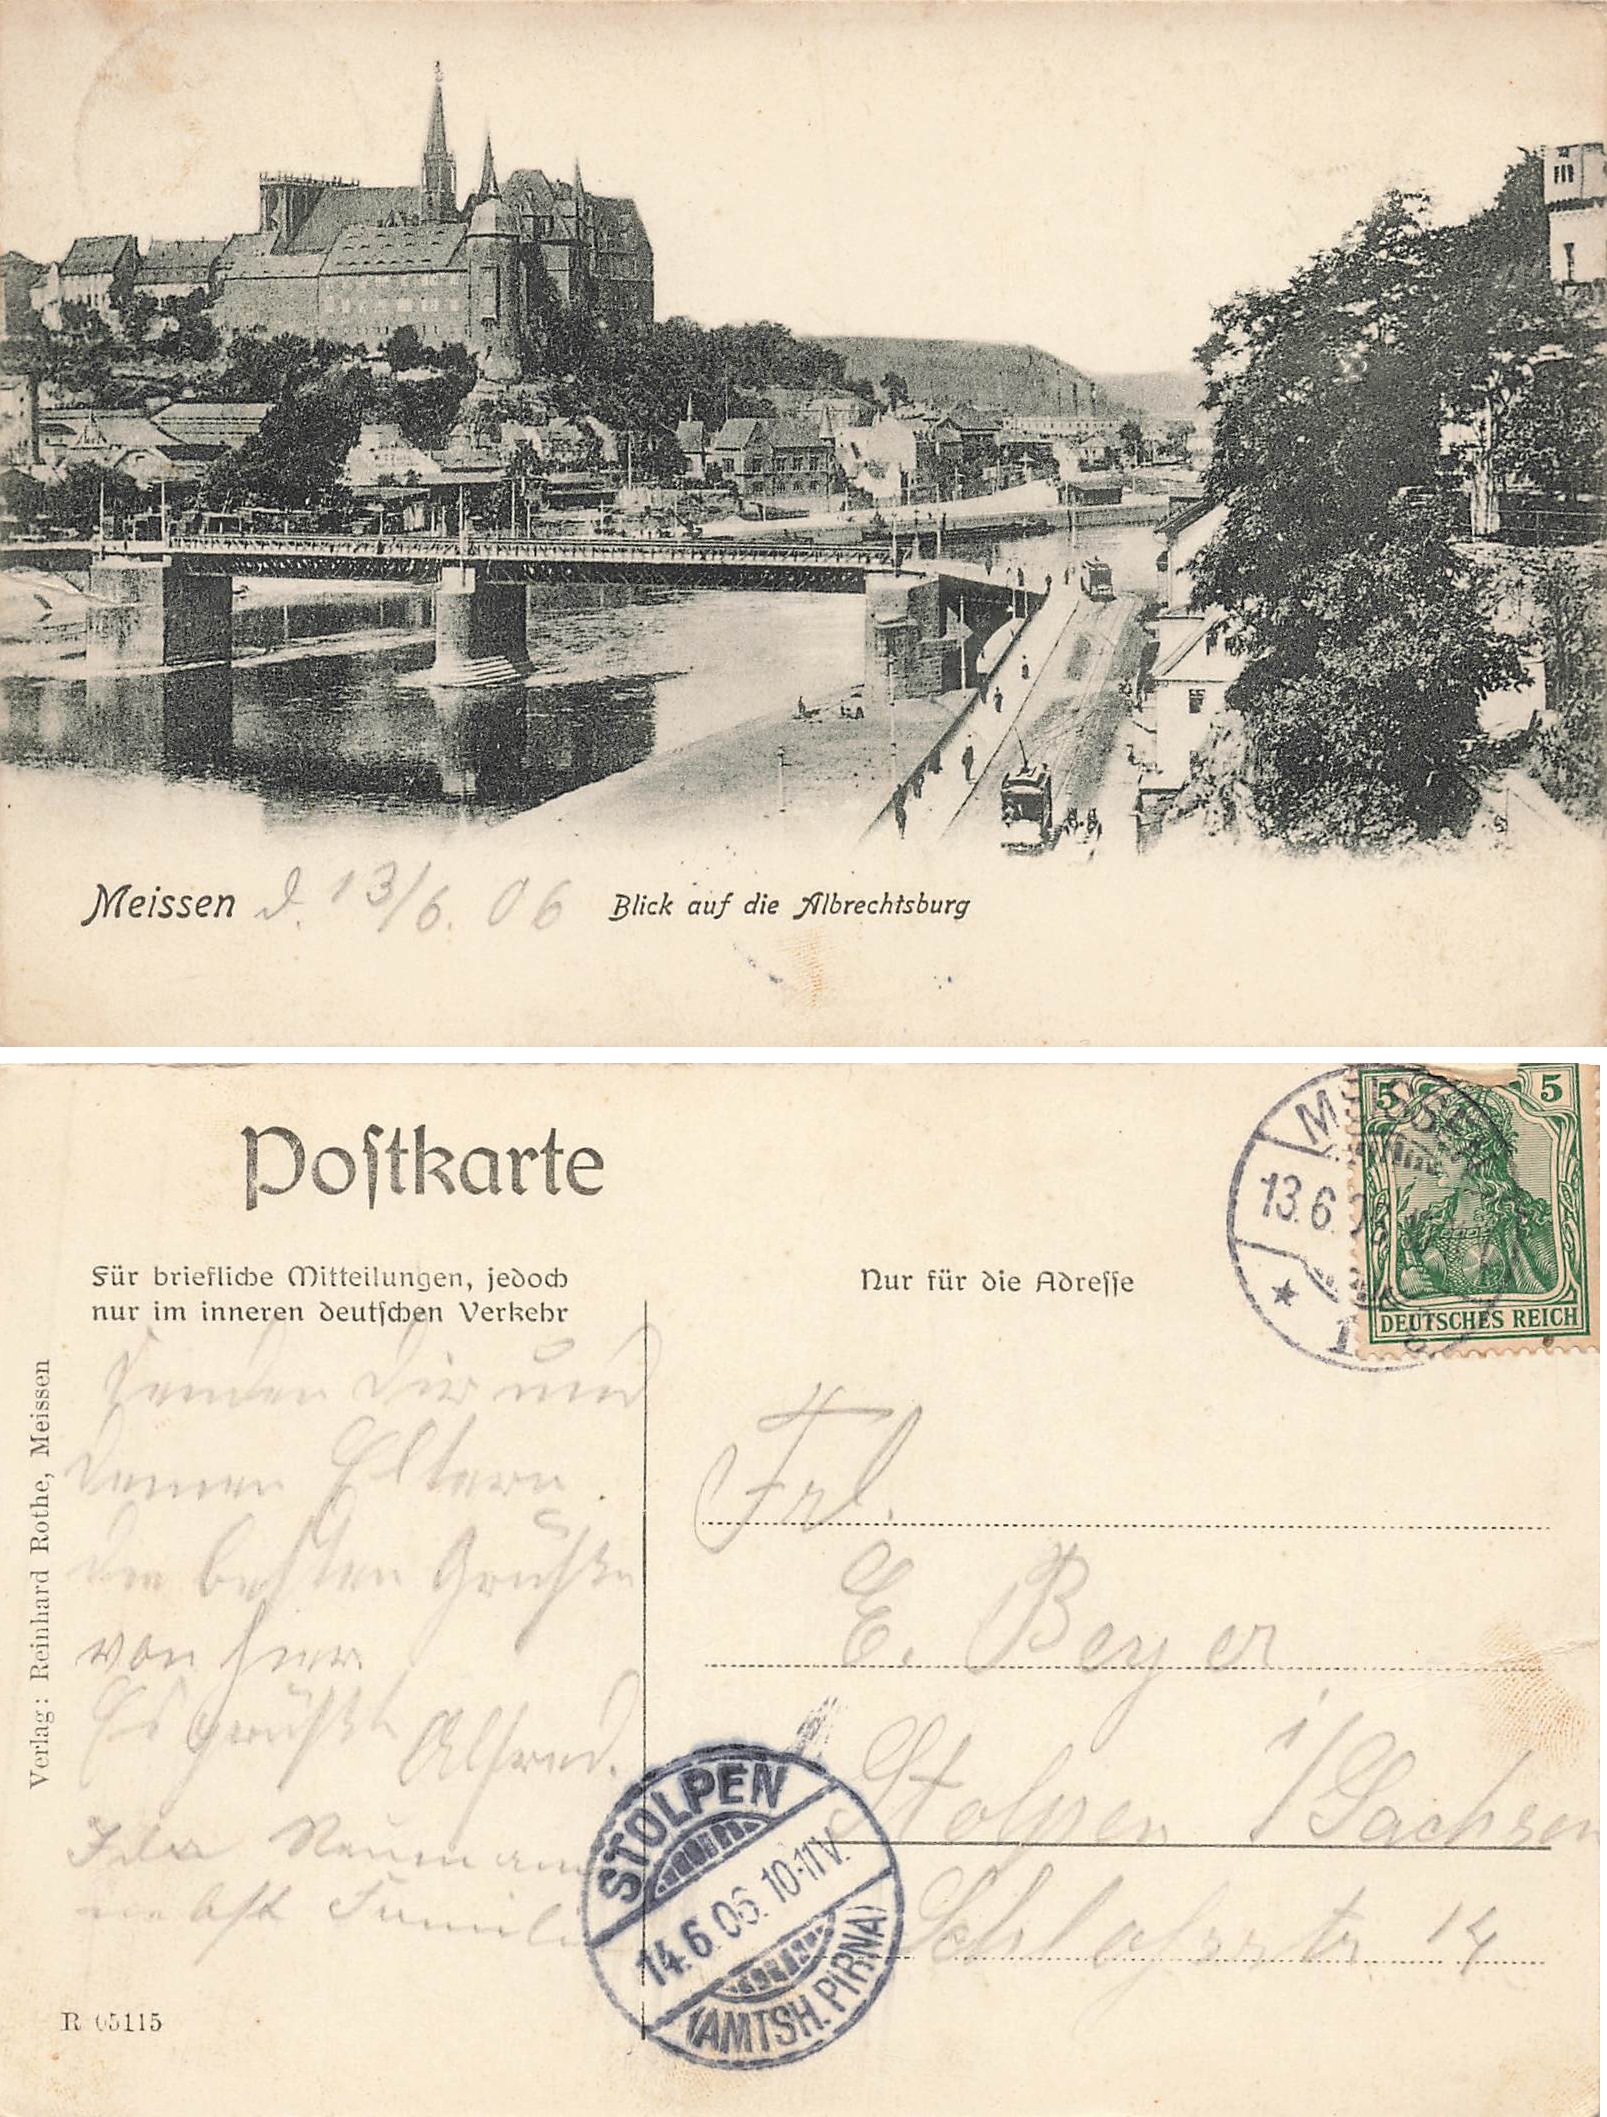 Meissen d. 13/6. 06 Blick auf die Albrechtsburg
Postkarte
Für briefliche Mitteilungen, jedoch
nur im inneren deutschen Verkehr
Nur für die Adresse
MEISSEN
13.6.
1
5 5
DEUTSCHES REICH
Senden Dir und
deinen Eltern
die besten Grüße
von hier
Es grüßt Alfred.
Ida Neumann
nebst Familie
Verlag: Reinhard Rothe, Meissen
R 05115
Frl.
E. Beyer
Stolpen i/Sachsen
14
STOLPEN
14.6.06. 10-11V.
(AMTSH. PIRNA)